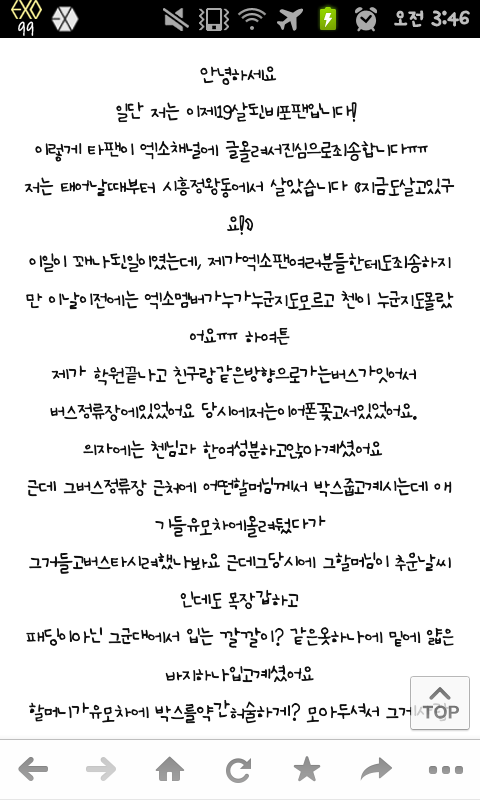 EXO
99
오전 3:46
안녕하세요
일단 저는 이제19살된비포팬입니다!
이렇게 타팬이 엑소채널에 글올려서진심으로죄송합니다ㅠㅠ
저는 태어날때부터 시흥정왕동에서 살았습니다 (지금도살고있구
요!)
이일이 꽤나된일이였는데, 제가엑소팬여러분들한테도죄송하지
만 이날이전에는 엑소멤버가누가누군지도모르고 첸이 누군지도몰랐
어요ㅠㅠ 하여튼
제가 학원끝나고 친구랑같은방향으로가는버스가잇어서
버스정류장에있었어요 당시에저는이어폰꽂고서있었어요.
의자에는 첸님과 한여성분하고앉아계셨어요
근데 그버스정류장 근처에 어떤할머님께서 박스줍고계시는데 애
기들유모차에올려뒀다가
그거들고버스타시려했나봐요 근데그당시에 그할머님이 추운날씨
인데도 목장갑하고
패딩이아닌 그군대에서 입는 깔깔이? 같은옷하나에 밑에 얇은
바지하나입고계셨어요
할머니가유모차에 박스를약간허술하게? 모아두셔서 그게
TOP